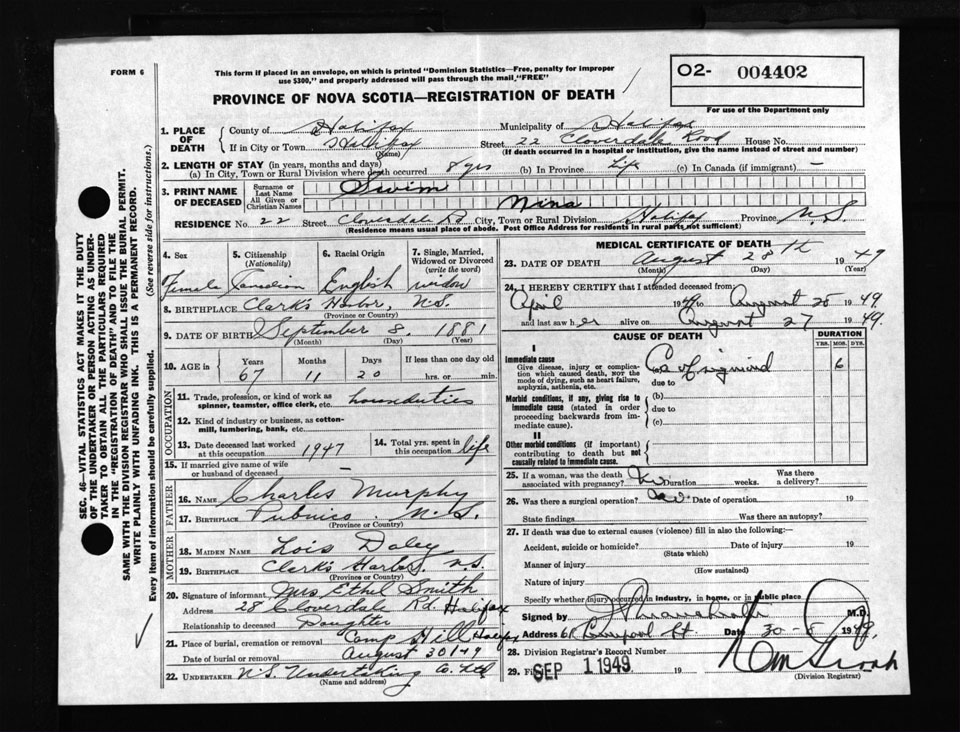 FORM 6
This form if placed in an envelope, on which is printed "Dominion Statistics—Free, penalty for improper
use $300," and properly addressed will pass through the mail, "FREE"
O2- 004402
For use of the Department only
PROVINCE OF NOVA SCOTIA—REGISTRATION OF DEATH
1. PLACE OF DEATH
County of Halifax Municipality of Halifax
If in City or Town Halifax (Name) Street 22 Cloverdale Road House No.
(If death occurred in a hospital or institution, give the name instead of street and number)
2. LENGTH OF STAY (in years, months and days)
(a) In City, Town or Rural Division where death occurred 8 yrs (b) In Province Life (c) In Canada (if immigrant) —
3. PRINT NAME OF DECEASED
Surname or Last Name Swim
All Given or Christian Names Nina
RESIDENCE No. 22 Street Cloverdale Rd City, Town or Rural Division Halifax Province N.S.
(Residence means usual place of abode. Post Office Address for residents in rural parts not sufficient)
4. Sex Female
5. Citizenship (Nationality) Canadian
6. Racial Origin English
7. Single, Married, Widowed or Divorced (write the word) widow
8. BIRTHPLACE Clark's Harbor, N.S.
(Province or Country)
9. DATE OF BIRTH September 8, 1881
(Month) (Day) (Year)
10. AGE in Years 67 Months 11 Days 20 If less than one day old hrs. or min.
OCCUPATION
11. Trade, profession, or kind of work as spinner, teamster, office clerk, etc. houseduties
12. Kind of industry or business, as cotton-mill, lumbering, bank, etc.
13. Date deceased last worked at this occupation 1947
14. Total yrs. spent in this occupation life
15. If married give name of wife or husband of deceased —
FATHER
16. NAME Charles Murphy
17. BIRTHPLACE Pubnico N.S.
(Province or Country)
MOTHER
18. MAIDEN NAME Lois Daley
19. BIRTHPLACE Clark's Harbor, N.S.
(Province or Country)
20. Signature of informant Mrs Ethel Smith
Address 28 Cloverdale Rd. Halifax
Relationship to deceased Daughter
21. Place of burial, cremation or removal Camp Hill Halifax
Date of burial or removal August 30/49
22. UNDERTAKER N.S. Undertaking Co. Ltd
(Name and address)
MEDICAL CERTIFICATE OF DEATH
23. DATE OF DEATH August 28th 1949
(Month) (Day) (Year)
24. I HEREBY CERTIFY that I attended deceased from
April 1949 to August 28 1949
and last saw her alive on August 27 1949.
CAUSE OF DEATH
DURATION
YRS. MOS. DYS.
I
Immediate cause
Give disease, injury or complication which caused death, NOT the mode of dying, such as heart failure, asphyxia, asthenia, etc.
(a) Ca of sigmoid 6
due to
Morbid conditions, if any, giving rise to immediate cause (stated in order proceeding backwards from immediate cause).
(b)
due to
(c)
II
Other morbid conditions (if important) contributing to death but not causally related to immediate cause.
25. If a woman, was the death associated with pregnancy? No Duration weeks. Was there a delivery?
26. Was there a surgical operation? Date of operation 19
State findings Was there an autopsy?
27. If death was due to external causes (violence) fill in also the following:—
Accident, suicide or homicide? Date of injury 19
(State which)
Manner of injury
(How sustained)
Nature of injury
Specify whether injury occurred in industry, in home, or in public place
Signed by M.D.
Address Liverpool St Date 30-8 1949.
28. Division Registrar's Record Number
29. Filed SEP 1 1949 19
(Division Registrar)
SEC. 46—VITAL STATISTICS ACT MAKES IT THE DUTY
OF THE UNDERTAKER OR PERSON ACTING AS UNDER-
TAKER TO OBTAIN ALL THE PARTICULARS REQUIRED
IN THE "REGISTRATION OF DEATH" AND TO FILE THE
SAME WITH THE DIVISION REGISTRAR WHO SHALL ISSUE THE BURIAL PERMIT.
WRITE PLAINLY WITH UNFADING INK. THIS IS A PERMANENT RECORD.
Every item of information should be carefully supplied. (See reverse side for instructions.)